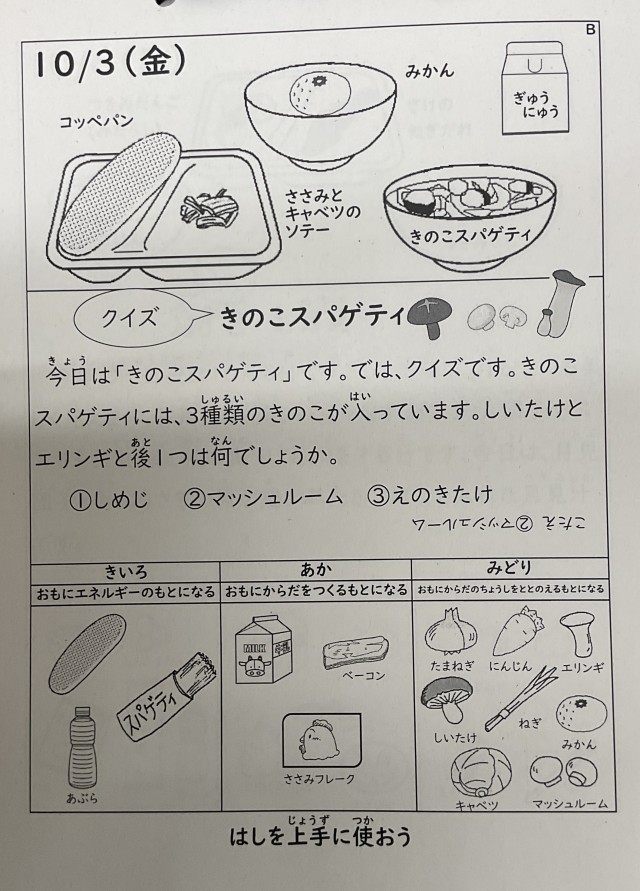 B
10/3(金)
みかん
ぎゅう
にゅう
コッペパン
ささみと
キャベツの
ソテー
きのこスパゲティ
クイズ
きのこスパゲティ
きょう
今日は「きのこスパゲティ」です。では、クイズです。きのこ
しゅるい はい
スパゲティには、3種類のきのこが入っています。しいたけと
あと なん
エリンギと後1つは何でしょうか。
①しめじ ②マッシュルーム ③えのきたけ
こたえ ②マッシュルーム
きいろ
おもにエネルギーのもとになる
スパゲティ
あぶら
あか
おもにからだをつくるもとになる
MILK
ベーコン
ささみフレーク
みどり
おもにからだのちょうしをととのえるもとになる
たまねぎ にんじん エリンギ
しいたけ ねぎ みかん
キャベツ マッシュルーム
じょうず つか
はしを上手に使おう